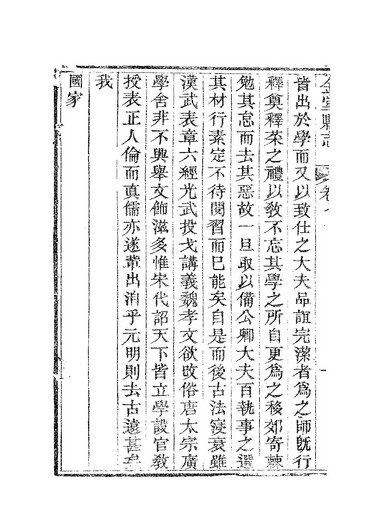 金堂縣志 卷七
皆出於學而又以致仕之大夫品誼完潔者為之師旣行
釋奠釋菜之禮以敎不忘其學之所自更為之移郊寄棘
勉其怠而去其惡故一旦取以備公卿大夫百執事之選
其材行素定不待閱習而已能矣自是而後古法寖衰雖
漢武表章六經光武投戈講義魏孝文欲改俗唐太宗廣
學舍非不興舉文飾滋多惟宋代詔天下皆立學設官敎
授表正人倫而真儒亦遂輩出洎乎元明則去古遠甚矣
我
國家